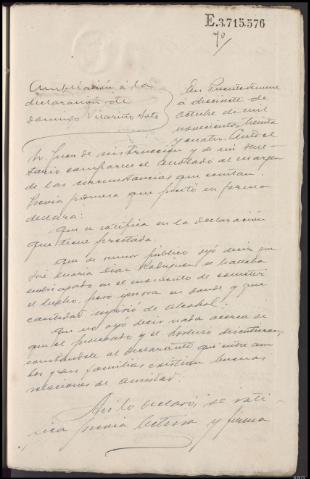 E.3.715.576
70
Ampliación a la
declaración de
Domingo Vilariño Soto
En Puentedeume
a diecisiete de
octubre de mil
novecientos treinta
y cuatro. Ante el
Sr Juez de instrucción y de mi Secre-
tario comparece el anotado al margen
de las circunstancias que constan
previa promesa que prestó en forma
declara:
Que se ratifica en la declaración
que tiene prestada.
Que de rumor público oyó decir que
José María Díaz se hallaba
embriagado en el momento de cometer
el hecho, pero ignora en donde y que
cantidad ingirió de alcohol.
Que no oyó decir nada acerca de
que el procesado y el
constándole al declarante que entre am-
bas familias existían buenas
relaciones de amistad.
Así lo declaró, se rati-
fica previa lectura y firma